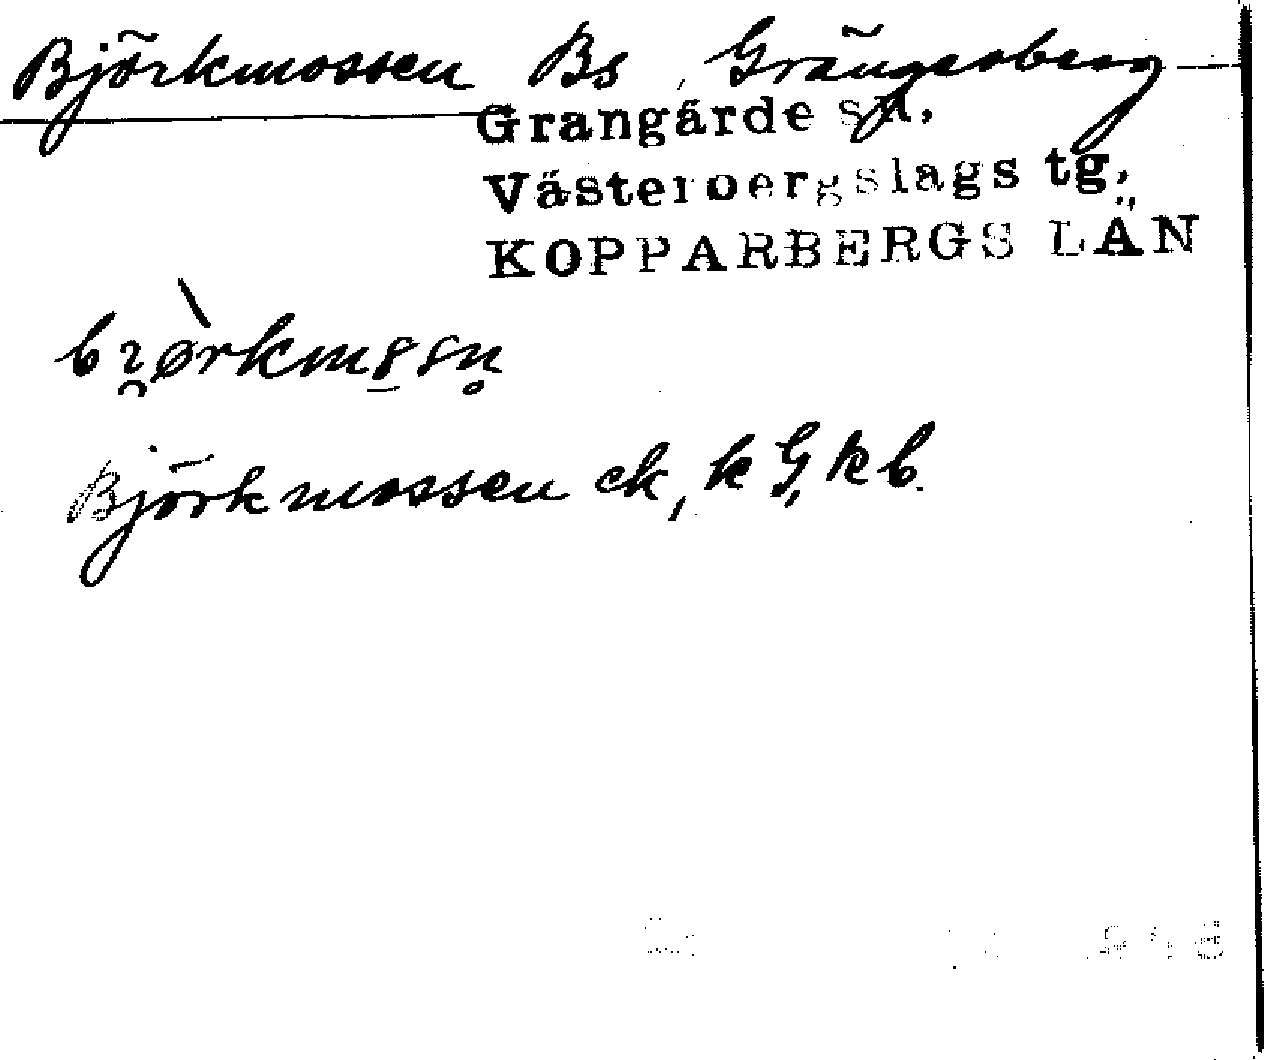 Björkmossen Bs, Grängesberg
Grangärde sn,
Västerbergslags tg,
KOPPARBERGS LÄN
Björkmossen ck, k G, kb.